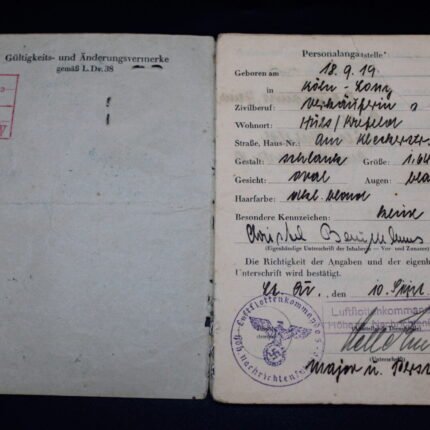 Gültigkeits- und Änderungsvermerke
gemäß L.Dv. 38
Personalangaben
Geboren am 18.9.19
in Köln-Long
Zivilberuf: Verkäuferin
Wohnort: Hüls/Krefeld
Straße, Haus-Nr.: Am
Gestalt: schlank Größe: 1.64
Gesicht: oval Augen: bla
Haarfarbe: dkl. blond
Besondere Kennzeichen: keine
Christel
(Eigenhändige Unterschrift der Inhaberin — Vor- und Zuname)
Die Richtigkeit der Angaben und der eigenh
Unterschrift wird bestätigt.
, den 10. Sept.
Luftflottenkommando
Luftflottenkomman
Höherer
(Unterschrift)
Major u.